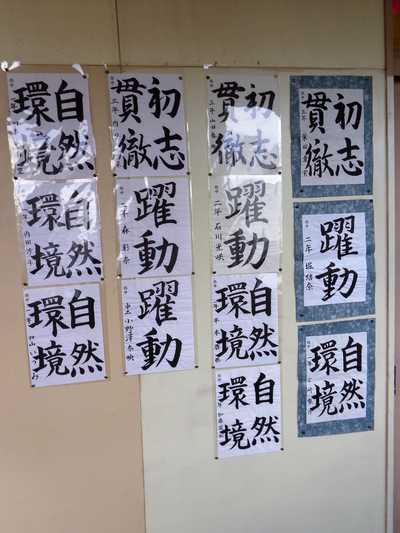 初志
貫徹
躍動
二年 堀 結奈
自然
環境
初志
貫徹
躍動
二年 石川
自然
環境
自然
環境
初志
貫徹
三年
躍動
二年 森 彩奈
躍動
小野澤
自然
環境
自然
環境
内田
自然
環境